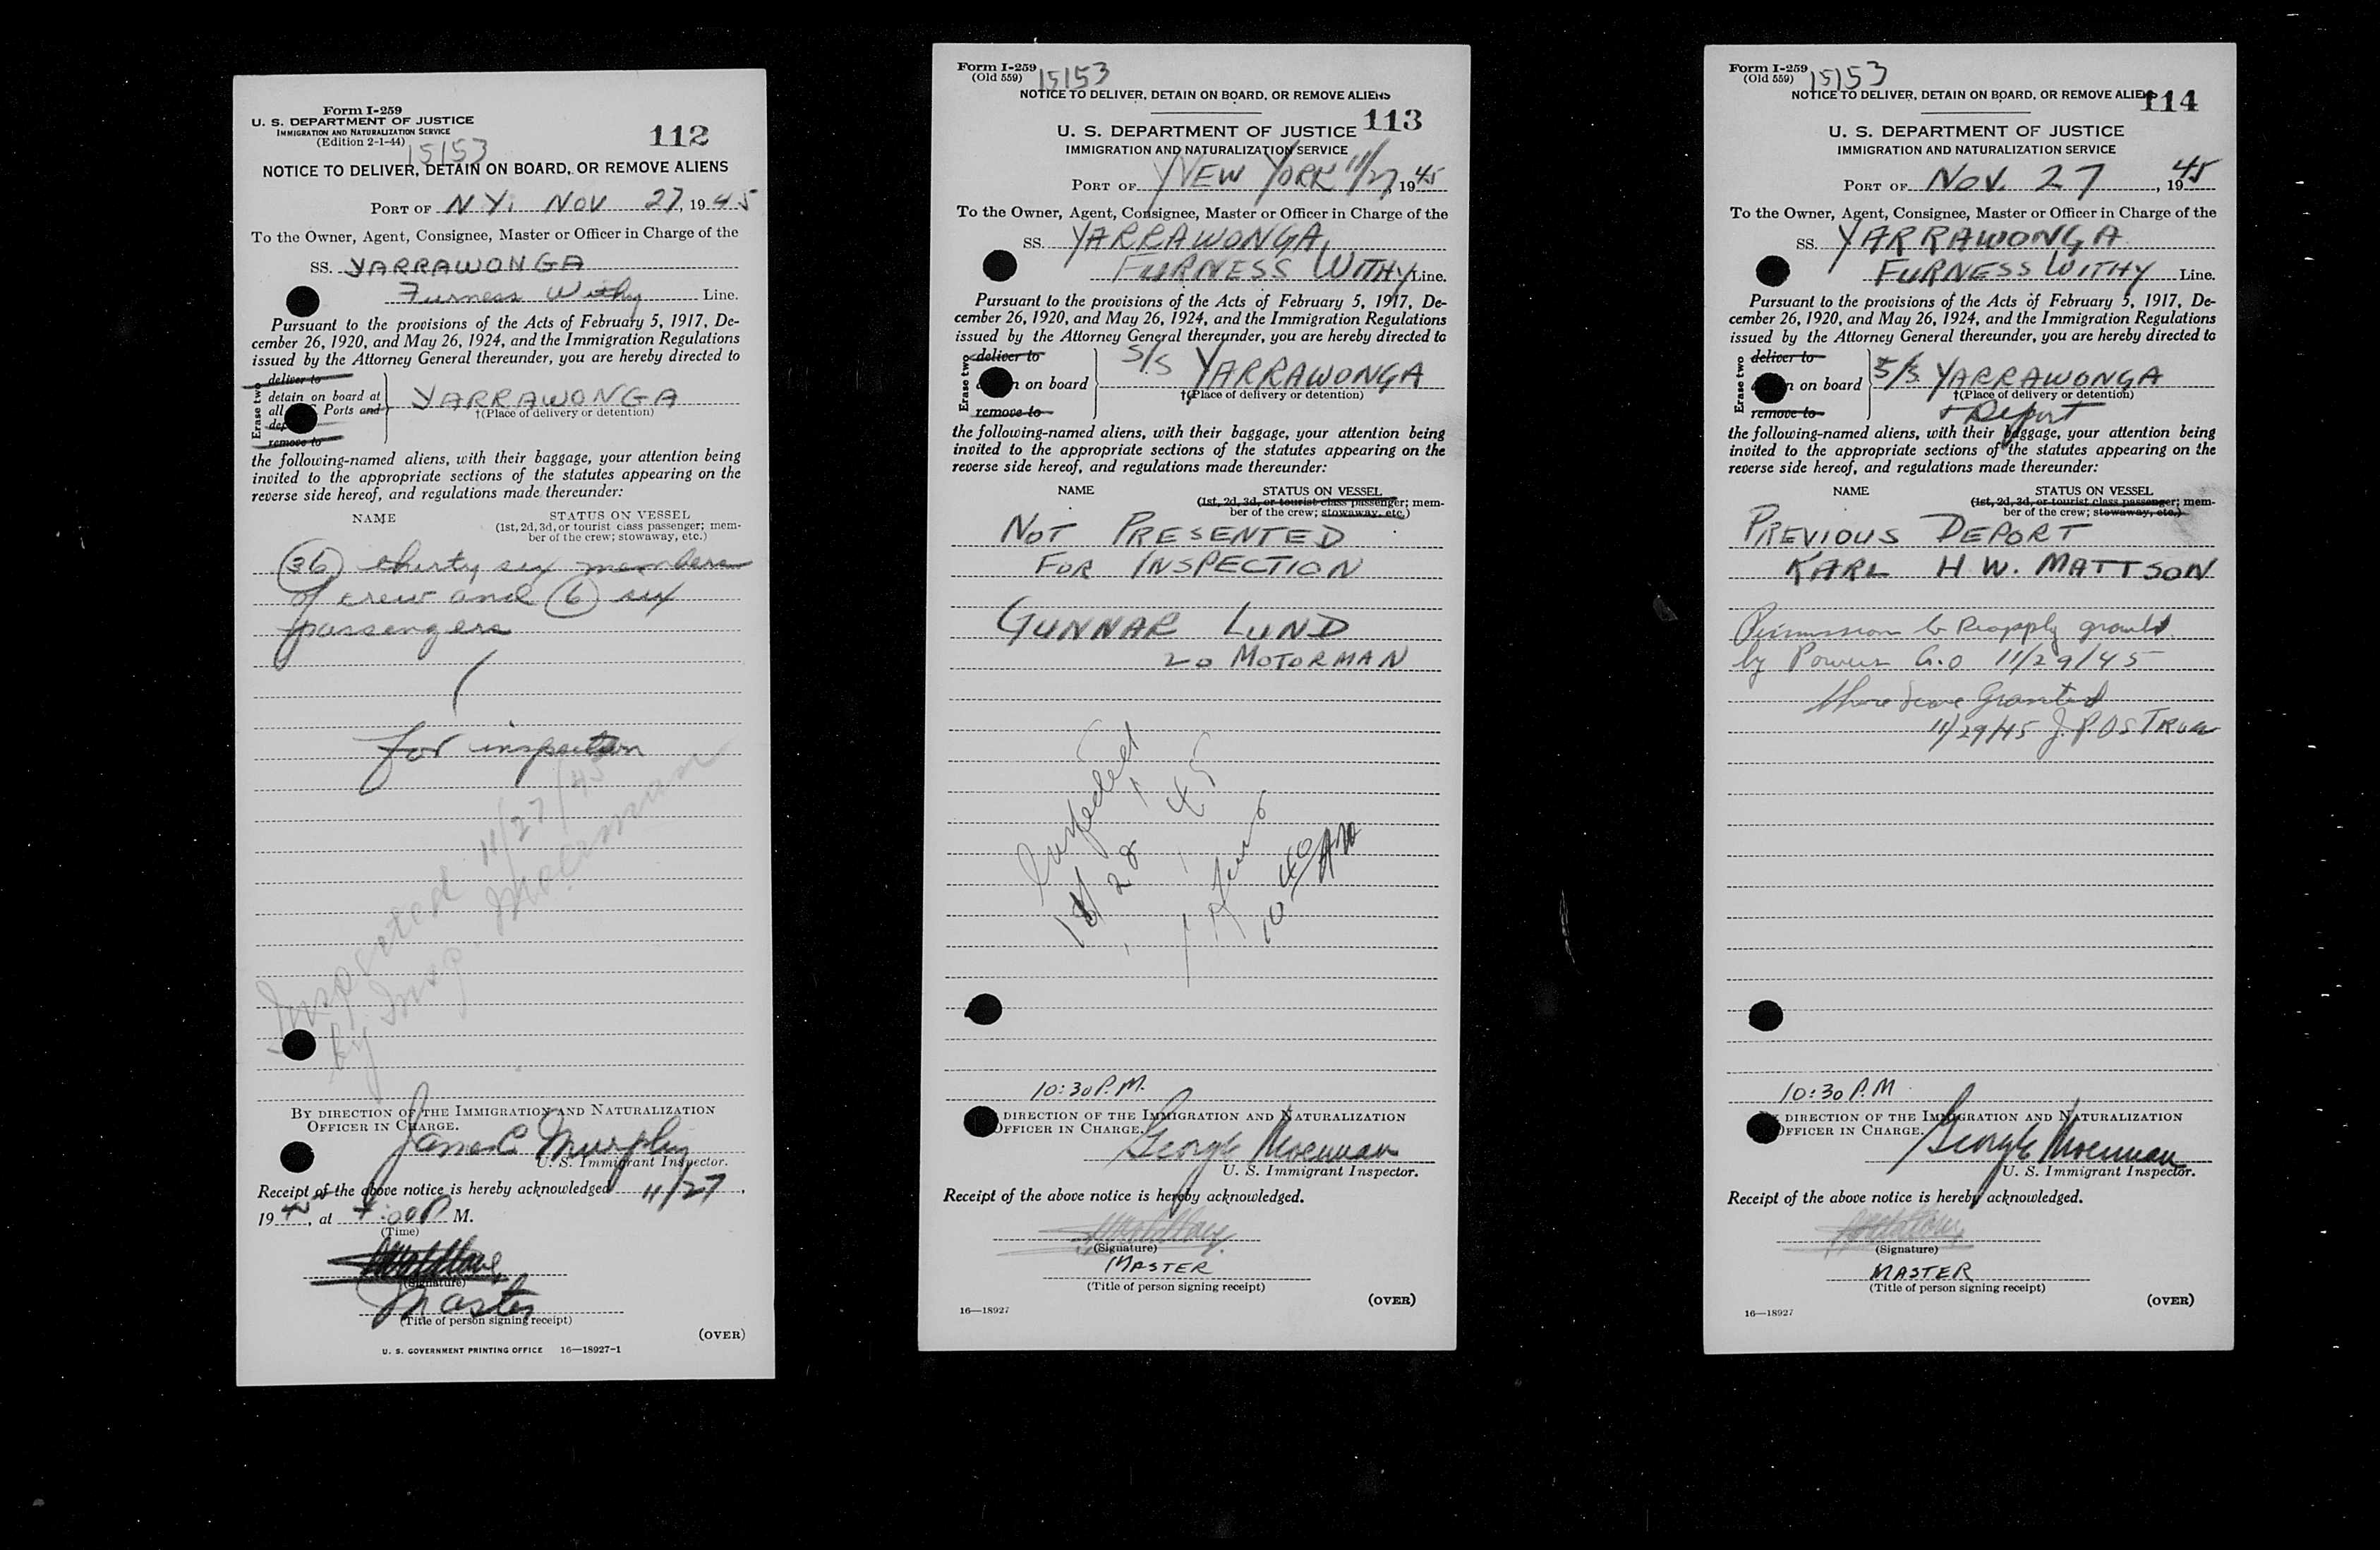 Form I-259
U. S. DEPARTMENT OF JUSTICE
IMMIGRATION AND NATURALIZATION SERVICE
(Edition 2-1-44)
112
15153
NOTICE TO DELIVER, DETAIN ON BOARD, OR REMOVE ALIENS
PORT OF N.Y. NOV 27, 1945
To the Owner, Agent, Consignee, Master or Officer in Charge of the
SS. YARRAWONGA
Furness Withy Line.
Pursuant to the provisions of the Acts of February 5, 1917, De-
cember 26, 1920, and May 26, 1924, and the Immigration Regulations
issued by the Attorney General thereunder, you are hereby directed to
Erase two
deliver to
detain on board at
all Ports and
remove to
YARRAWONGA
†(Place of delivery or detention)
the following-named aliens, with their baggage, your attention being
invited to the appropriate sections of the statutes appearing on the
reverse side hereof, and regulations made thereunder:
NAME STATUS ON VESSEL
(1st, 2d, 3d, or tourist class passenger; mem-
ber of the crew; stowaway, etc.)
(36) thirty six members
of crew and (6) six
passengers
for inspection
Inspected 11/27/45
by Insp.
BY DIRECTION OF THE IMMIGRATION AND NATURALIZATION
OFFICER IN CHARGE.
James C Murphy
U. S. Immigrant Inspector.
Receipt of the above notice is hereby acknowledged 11/27,
19 45, at :00 P M.
(Time)
(Signature)
Master
(Title of person signing receipt)
(OVER)
U. S. GOVERNMENT PRINTING OFFICE 16—18927-1
Form I-259
(Old 559)
15153
NOTICE TO DELIVER, DETAIN ON BOARD, OR REMOVE ALIENS
113
U. S. DEPARTMENT OF JUSTICE
IMMIGRATION AND NATURALIZATION SERVICE
PORT OF NEW YORK 11/27, 1945
To the Owner, Agent, Consignee, Master or Officer in Charge of the
SS. YARRAWONGA,
FURNESS WITHY Line.
Pursuant to the provisions of the Acts of February 5, 1917, De-
cember 26, 1920, and May 26, 1924, and the Immigration Regulations
issued by the Attorney General thereunder, you are hereby directed to
Erase two
deliver to
on board
remove to
S/S YARRAWONGA
†(Place of delivery or detention)
the following-named aliens, with their baggage, your attention being
invited to the appropriate sections of the statutes appearing on the
reverse side hereof, and regulations made thereunder:
NAME STATUS ON VESSEL
(1st, 2d, 3d, or tourist class passenger; mem-
ber of the crew; stowaway, etc.)
NOT PRESENTED
FOR INSPECTION
GUNNAR LUND
2D MOTORMAN
Inspected
11/28 45
10 40 AM
10:30 P.M.
DIRECTION OF THE IMMIGRATION AND NATURALIZATION
OFFICER IN CHARGE.
George
U. S. Immigrant Inspector.
Receipt of the above notice is hereby acknowledged.
(Signature)
MASTER
(Title of person signing receipt)
(OVER)
16—18927
Form I-259
(Old 559)
15153
NOTICE TO DELIVER, DETAIN ON BOARD, OR REMOVE ALIENS
114
U. S. DEPARTMENT OF JUSTICE
IMMIGRATION AND NATURALIZATION SERVICE
PORT OF NOV. 27, 1945
To the Owner, Agent, Consignee, Master or Officer in Charge of the
SS. YARRAWONGA
FURNESS WITHY Line.
Pursuant to the provisions of the Acts of February 5, 1917, De-
cember 26, 1920, and May 26, 1924, and the Immigration Regulations
issued by the Attorney General thereunder, you are hereby directed to
Erase two
deliver to
on board
remove to
S/S YARRAWONGA
†(Place of delivery or detention)
+ Deport
the following-named aliens, with their baggage, your attention being
invited to the appropriate sections of the statutes appearing on the
reverse side hereof, and regulations made thereunder:
NAME STATUS ON VESSEL
(1st, 2d, 3d, or tourist class passenger; mem-
ber of the crew; stowaway, etc.)
PREVIOUS DEPORT
KARL H. W. MATTSON
Permission to Reapply granted
by Powers 11/29/45
Shore leave Granted
11/29/45
10:30 P.M
DIRECTION OF THE IMMIGRATION AND NATURALIZATION
OFFICER IN CHARGE.
George
U. S. Immigrant Inspector.
Receipt of the above notice is hereby acknowledged.
(Signature)
MASTER
(Title of person signing receipt)
(OVER)
16—18927